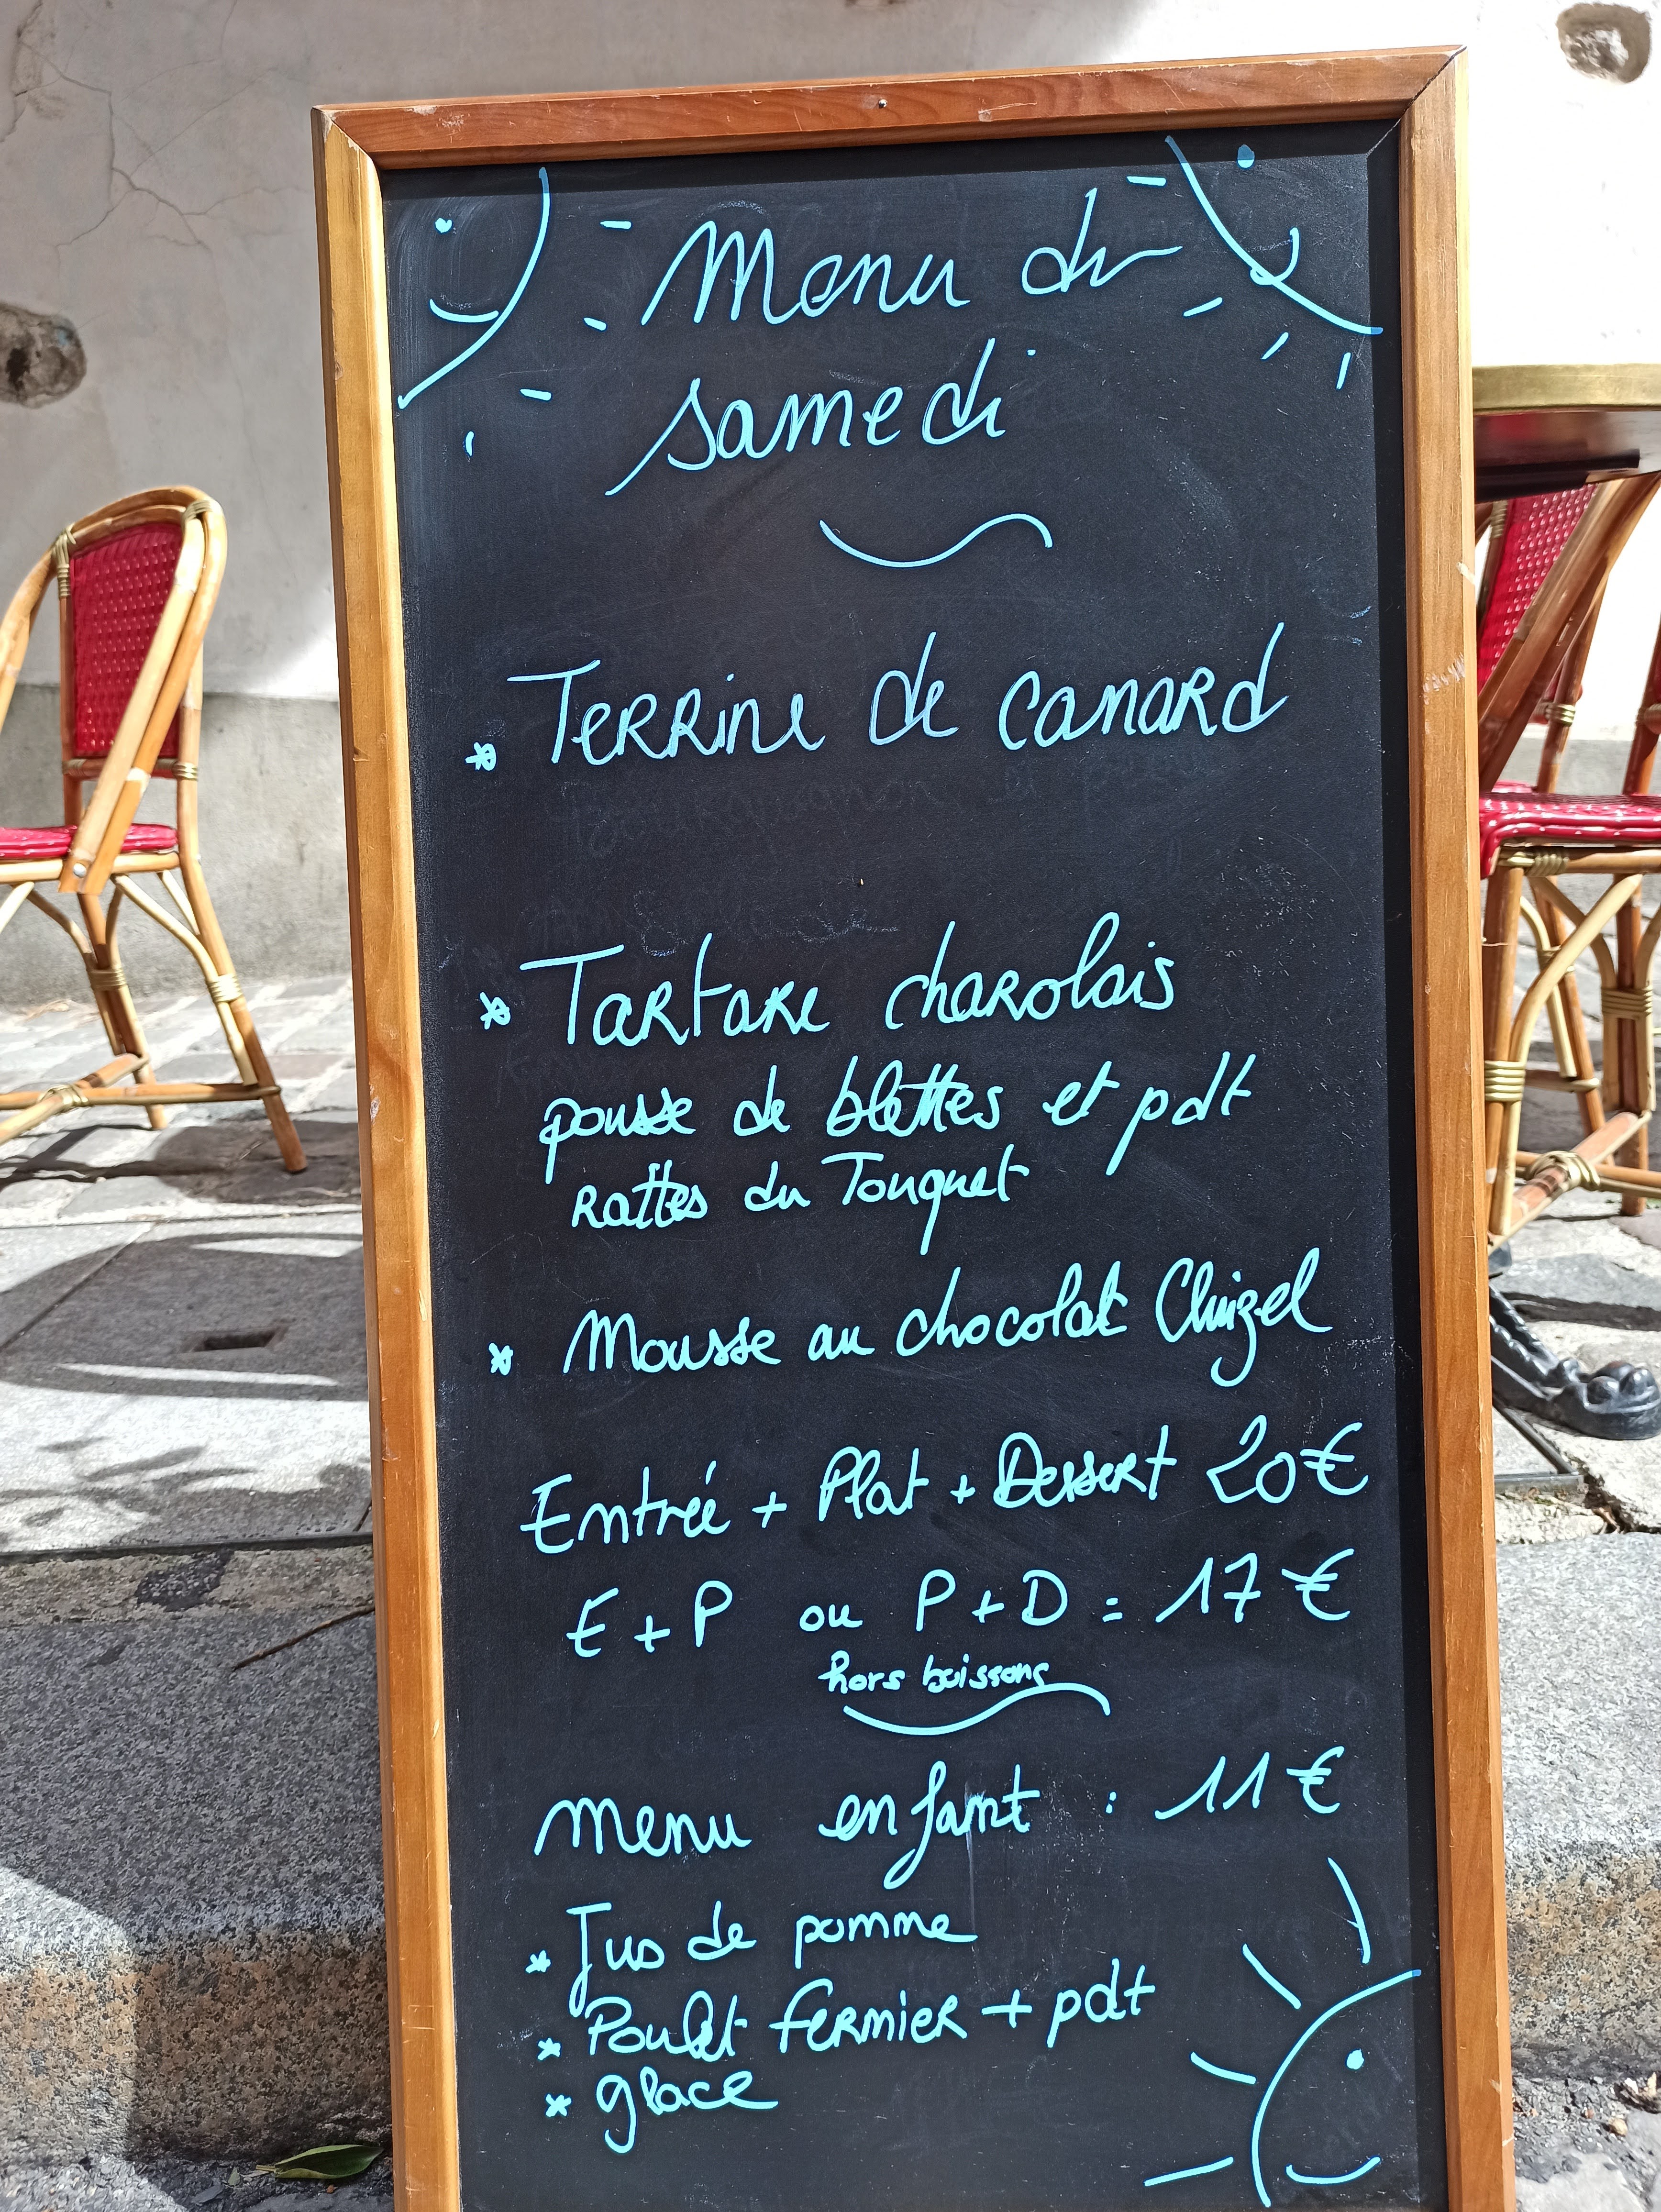 Menu du
samedi
* Terrine de canard
* Tartare charolais
pousse de blettes et pdt
rattes du Touquet
* Mousse au chocolat Cluizel
Entrée + Plat + Dessert 20€
E + P ou P + D = 17 €
hors boissons
Menu enfant : 11 €
* Jus de pomme
* Poulet fermier + pdt
* glace